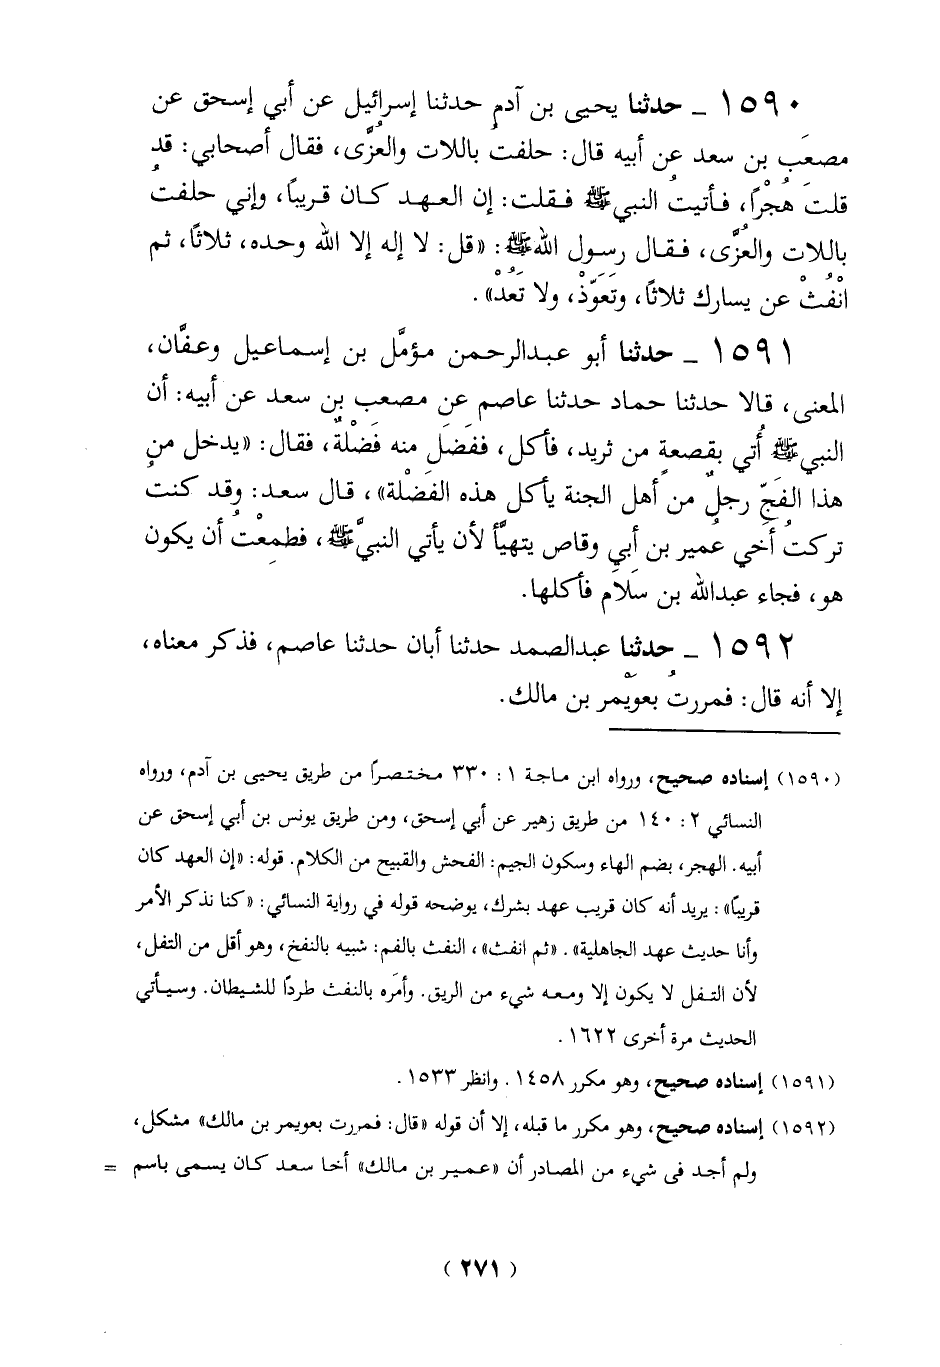 ١٥٩٠ ـ حدثنا يحيى بن آدم حدثنا إسرائيل عن أبي إسحق عن
مصعَب بن سعد عن أبيه قال: حلفت باللات والعُزَّى، فقال أصحابي: قد
قلتَ هُجْرًا، فأتيتُ النبيﷺ فقلت: إن العهد كان قريباً، وإني حلفتُ
باللات والعُزَّى، فقال رسول اللهﷺ: «قل: لا إله إلا الله وحده، ثلاثًا، ثم
انْفُثْ عن يسارك ثلاثاً، وتَعَوّذْ، ولا تَعُدْ».
١٥٩١ ـ حدثنا أبو عبدالرحمن مؤمَّل بن إسماعيل وعفَّان،
المعنى، قالا حدثنا حماد حدثنا عاصم عن مصعب بن سعد عن أبيه: أن
النبيﷺ أُتي بقصعةٍ من ثريد، فأكل، ففَضَلَ منه فَضْلةٌ، فقال: «يدخل من
هذا الفَجّ رجلٌ من أهل الجنة يأكل هذه الفَضْلة»، قال سعد: وقد كنت
تركتُ أخي عُمير بن أبي وقاص يتهيَّأ لأن يأتي النبيَّﷺ، فطمِعْتُ أن يكون
هو، فجاء عبدالله بن سَلَام فأكلها.
١٥٩٢ ـ حدثنا عبدالصمد حدثنا أبان حدثنا عاصم، فذكر معناه،
إلا أنه قال: فمررتُ بعويمْر بن مالك.
(١٥٩٠) إسناده صحيح، ورواه ابن ماجة ١: ٣٣٠ مختصراً من طريق يحيى بن آدم، ورواه
النسائي ٢: ١٤٠ من طريق زهير عن أبي إسحق، ومن طريق يونس بن أبي إسحق عن
أبيه. الهجر، بضم الهاء وسكون الجيم: الفحش والقبيح من الكلام. قوله: «إن العهد كان
قريباً»: يريد أنه كان قريب عهد بشرك، يوضحه قوله في رواية النسائي: «كنا نذكر الأمر
وأنا حديث عهد الجاهلية». «ثم انفث»، النفث بالفم: شبيه بالنفخ، وهو أقل من التفل،
لأن التفل لا يكون إلا ومعه شيء من الريق. وأمَره بالنفث طردًا للشيطان. وسيأتي
الحديث مرة أخرى ١٦٢٢.
(١٥٩١) إسناده صحيح، وهو مكرر ١٤٥٨. وانظر ١٥٣٣.
(١٥٩٢) إسناده صحيح، وهو مكرر ما قبله، إلا أن قوله «قال: فمررت بعويمر بن مالك» مشكل،
ولم أجد فى شيء من المصادر أن «عمير بن مالك» أخا سعد كان يسمى باسم =
(٢٧١)